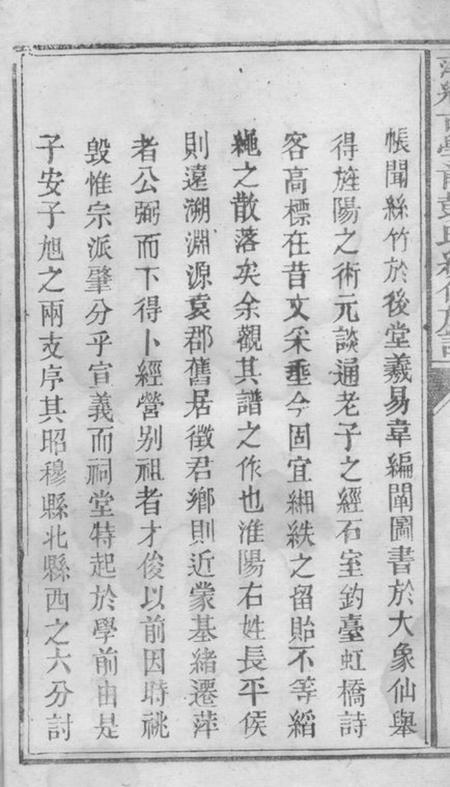 帳聞絲竹於後堂羲易韋編闡圖書於大象仙舉
得旌陽之術元談通老子之經石室釣臺虹橋詩
客高標在昔文采垂今固宜緗紩之留貽不等縚
繩之散落矣余觀其譜之作也淮陽右姓長平侯
則遠溯淵源袁郡舊居徵君鄉則近蒙基緒遷萍
者公弼而下得卜經營别祖者才俊以前因時祧
毁惟宗派肇分乎宣義而祠堂特起於學前由是
子安子旭之兩支序其昭穆縣北縣西之六分討